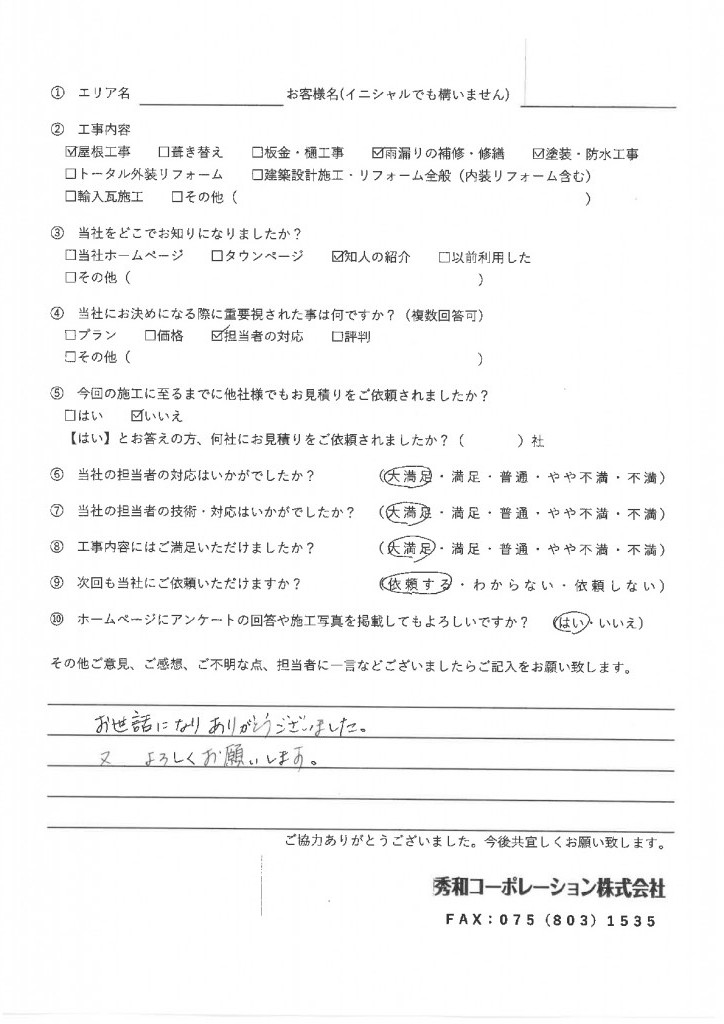 ① エリア名 お客様名(イニシャルでも構いません)
② 工事内容
☑屋根工事 □葺き替え □板金・樋工事 ☑雨漏りの補修・修繕 ☑塗装・防水工事
□トータル外装リフォーム □建築設計施工・リフォーム全般（内装リフォーム含む）
□輸入瓦施工 □その他（ ）
③ 当社をどこでお知りになりましたか？
□当社ホームページ □タウンページ ☑知人の紹介 □以前利用した
□その他（ ）
④ 当社にお決めになる際に重要視された事は何ですか？（複数回答可）
□プラン □価格 ☑担当者の対応 □評判
□その他（ ）
⑤ 今回の施工に至るまでに他社様でもお見積りをご依頼されましたか？
□はい ☑いいえ
【はい】とお答えの方、何社にお見積りをご依頼されましたか？（ ）社
⑥ 当社の担当者の対応はいかがでしたか？ （大満足・満足・普通・やや不満・不満）
⑦ 当社の担当者の技術・対応はいかがでしたか？ （大満足・満足・普通・やや不満・不満）
⑧ 工事内容にはご満足いただけましたか？ （大満足・満足・普通・やや不満・不満）
⑨ 次回も当社にご依頼いただけますか？ （依頼する・わからない・依頼しない）
⑩ ホームページにアンケートの回答や施工写真を掲載してもよろしいですか？ （はい・いいえ）
その他ご意見、ご感想、ご不明な点、担当者に一言などございましたらご記入をお願い致します。
お世話になりありがとうございました。
又 よろしくお願いします。
ご協力ありがとうございました。今後共宜しくお願い致します。
秀和コーポレーション株式会社
FAX：075（803）1535